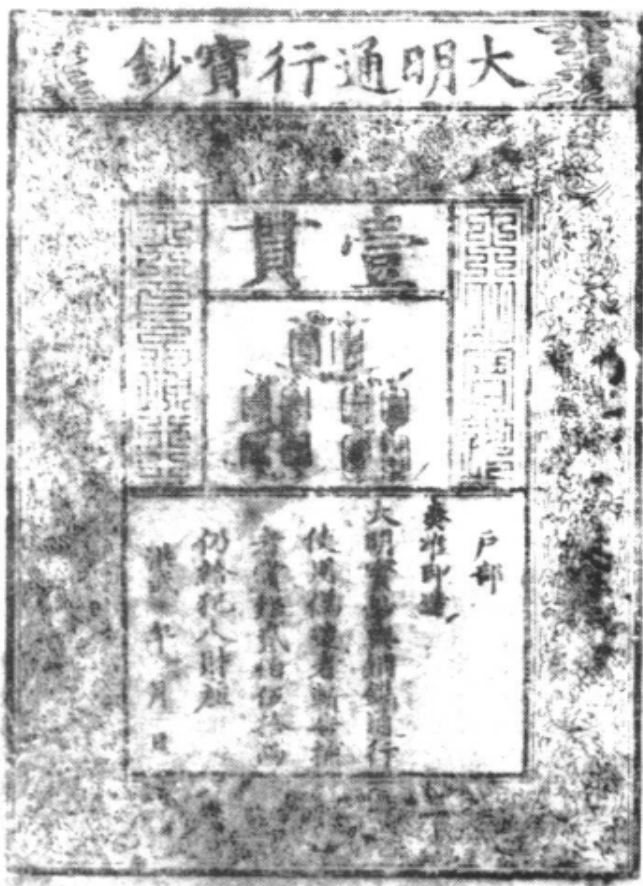 大明通行寶鈔
壹貫
户部
奏准印造
大明寶鈔與銅錢通行
使用偽造者斬告捕
者賞銀貳伯伍拾兩
仍給犯人財産
洪武 年 月 日